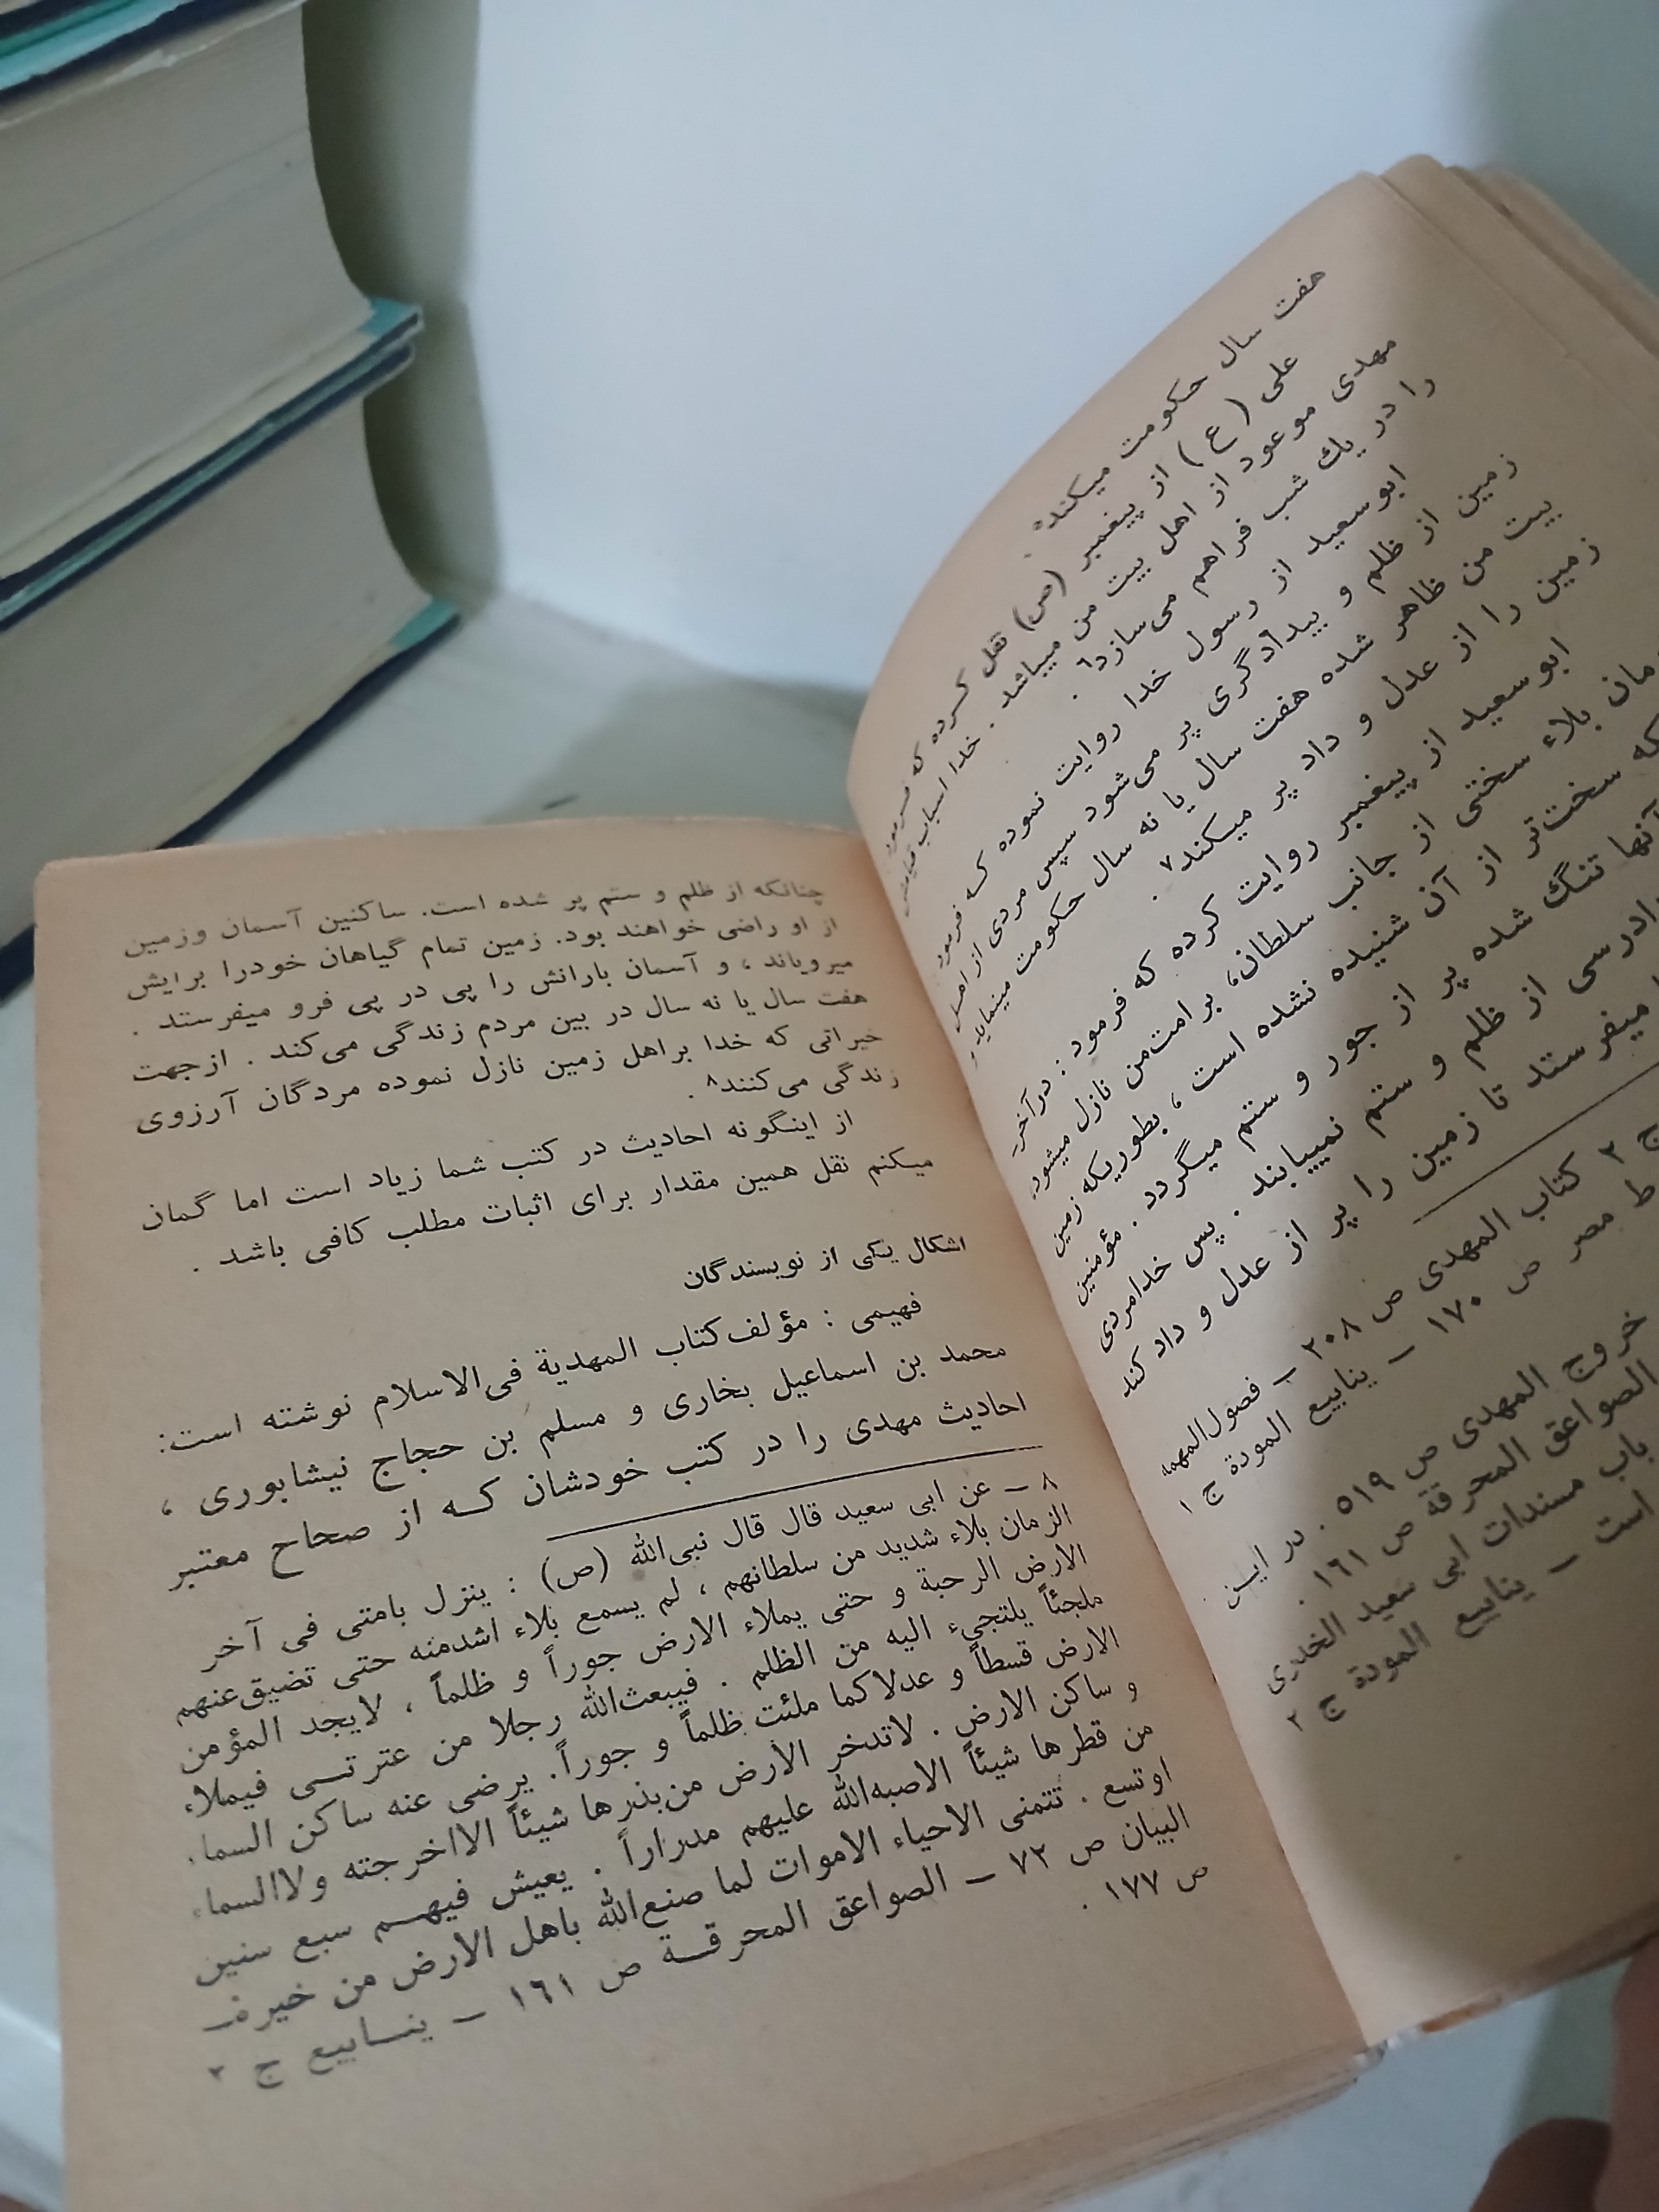 هفت سال حکومت میکند°.
علی (ع) از پیغمبر (ص) نقل کرده که فرمود
مهدی موعود از اهل بیت من میباشد. خدا اسباب قیامش
را در یك شب فراهم می‌سازد٦.
ابوسعید از رسول خدا روایت نموده که فرمود
زمین از ظلم و بیدادگری پر می‌شود سپس مردی از اهل
بیت من ظاهر شده هفت سال یا نه سال حکومت مینماید و
زمین را از عدل و داد پر میکند۷.
ابوسعید از پیغمبر روایت کرده که فرمود: درآخر
زمان بلاء سختی از جانب سلطان، بر امت‌من نازل میشود
که سخت‌تر از آن شنیده نشده است، بطوریکه زمین
آنها تنگ شده پر از جور و ستم میگردد. مؤمنین
دادرسی از ظلم و ستم نمییابند. پس خدامردی
میفرستد تا زمین را پر از عدل و داد کند
ج ۲ کتاب المهدی ص ۲۰۸ – فصول‌المهمه
ط مصر ص ۱۷۰ – ینابیع المودة ج ۱
خروج المهدی ص ۵۱۹. در این
الصواعق المحرقة ص ۱٦۱.
باب مسندات ابی سعید الخدری
است – ینابیع المودة ج ۲
چنانکه از ظلم و ستم پر شده است. ساکنین آسمان وزمین
از او راضی خواهند بود. زمین تمام گیاهان خودرا برایش
میرویاند، و آسمان بارانش را پی در پی فرو میفرستد.
هفت سال یا نه سال در بین مردم زندگی می‌کند. ازجهت
خیراتی که خدا براهل زمین نازل نموده مردگان آرزوی
زندگی می‌کنند۸.
از اینگونه احادیث در کتب شما زیاد است اما گمان
میکنم نقل همین مقدار برای اثبات مطلب کافی باشد.
اشکال یکی از نویسندگان
فهیمی: مؤلف‌کتاب المهدیة فی‌الاسلام نوشته است:
محمد بن اسماعیل بخاری و مسلم بن حجاج نیشابوری،
احادیث مهدی را در کتب خودشان که از صحاح معتبر
۸ – عن ابی سعید قال قال نبی‌الله (ص): ینزل بامتی فی آخر
الزمان بلاء شدید من سلطانهم، لم یسمع بلاء اشدمنه حتی تضیق‌عنهم
الارض الرحبة و حتی یملاء الارض جوراً و ظلماً، لایجد المؤمن
ملجئاً یلتجیء الیه من الظلم. فیبعث‌الله رجلا من عترتی فیملاء
الارض قسطاً و عدلاکما ملئت ظلماً و جوراً. یرضی عنه ساکن السماء
و ساکن الارض. لاتدخر الأرض من‌بذرها شیئاً الااخرجته ولاالسماء
من قطرها شیئاً الاصبه‌الله علیهم مدراراً. یعیش فیهم سبع سنین
اوتسع. تتمنی الاحیاء الاموات لما صنع‌الله باهل الارض من خیره
البیان ص ۷۲ – الصواعق المحرقة ص ۱٦۱ – ینابیع ج ۲
ص ۱۷۷.